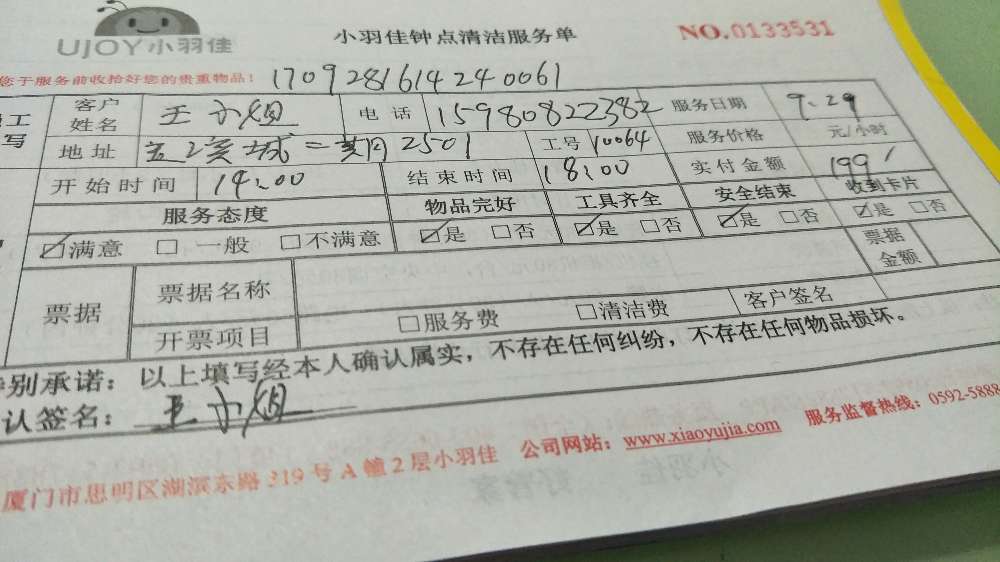 UJOY小羽佳
小羽佳钟点清洁服务单
NO.0133531
您于服务前收拾好您的贵重物品！
1709281614240061
工
写
客户姓名 王小姐 电话 15980822382 服务日期 9.29
地址 二期2501 工号 10064 服务价格 元/小时
开始时间 14:00 结束时间 18:00 实付金额 199
服务态度 物品完好 工具齐全 安全结束 收到卡片
☑满意 □一般 □不满意 ☑是 □否 ☑是 □否 ☑是 □否 ☑是 □否
票据 票据名称 票据金额
开票项目 □服务费 □清洁费 客户签名
别承诺：以上填写经本人确认属实，不存在任何纠纷，不存在任何物品损坏。
认签名：王小姐
厦门市思明区湖滨东路319号A幢2层小羽佳 公司网站：www.xiaoyujia.com 服务监督热线：0592-5888